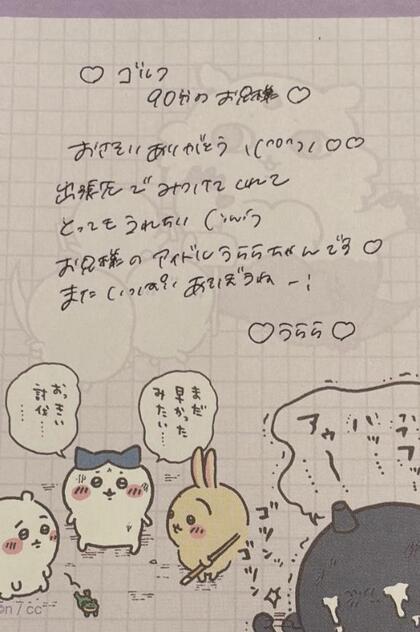 ♡ ゴルフ
90分のお兄様 ♡
おさそいありがとう \(^o^)/ ♡♡
出張先でみつけてくれて
とってもうれちい (´ω`)
お兄様のアイドルうららちゃんです♡
またいっぱいあそぼうねー!
♡うらら♡
まだ
早かった
みたい…
おっきい
討伐……
フフフ
バッ
アゥ〜
ゴッン
ゴッン
on / cc